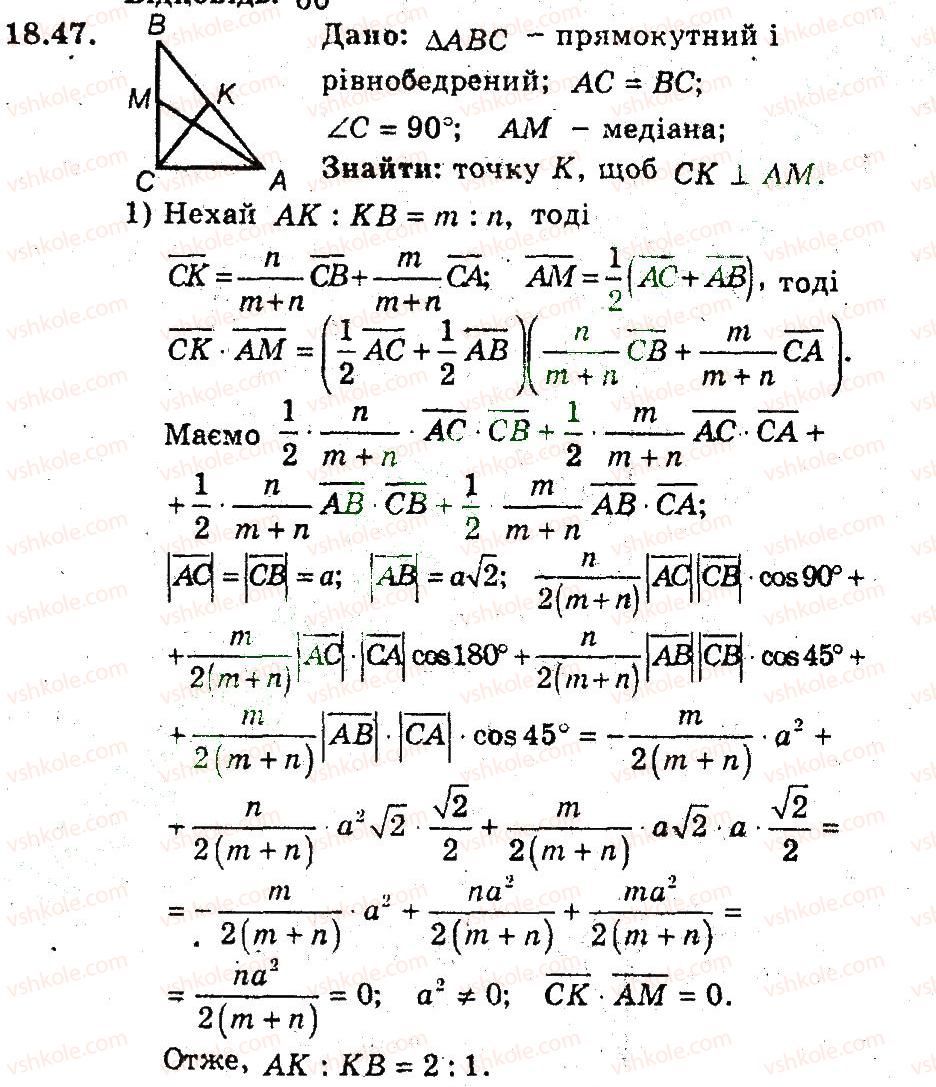 18.47.
B
M K
C A
Дано: △ABC – прямокутний і
рівнобедрений; AC = BC;
∠C = 90°; AM – медіана;
Знайти: точку K, щоб CK ⊥ AM.
1) Нехай AK : KB = m : n, тоді
$\overline{CK} = \frac{n}{m+n}\overline{CB} + \frac{m}{m+n}\overline{CA}$; $\overline{AM} = \frac{1}{2}(\overline{AC} + \overline{AB})$, тоді
$\overline{CK} \cdot \overline{AM} = \left(\frac{1}{2}\overline{AC} + \frac{1}{2}\overline{AB}\right)\left(\frac{n}{m+n}\overline{CB} + \frac{m}{m+n}\overline{CA}\right)$.
Маємо $\frac{1}{2} \cdot \frac{n}{m+n} \cdot \overline{AC} \cdot \overline{CB} + \frac{1}{2} \cdot \frac{m}{m+n}\overline{AC} \cdot \overline{CA} +$
$+ \frac{1}{2} \cdot \frac{n}{m+n}\overline{AB} \cdot \overline{CB} + \frac{1}{2} \cdot \frac{m}{m+n}\overline{AB} \cdot \overline{CA}$;
$|\overline{AC}| = |\overline{CB}| = a$; $|\overline{AB}| = a\sqrt{2}$; $\frac{n}{2(m+n)}|\overline{AC}||\overline{CB}| \cdot \cos 90° +$
$+ \frac{m}{2(m+n)}|\overline{AC}| \cdot |\overline{CA}| \cos 180° + \frac{n}{2(m+n)}|\overline{AB}||\overline{CB}| \cdot \cos 45° +$
$+ \frac{m}{2(m+n)}|\overline{AB}| \cdot |\overline{CA}| \cdot \cos 45° = -\frac{m}{2(m+n)} \cdot a^2 +$
$+ \frac{n}{2(m+n)} \cdot a^2\sqrt{2} \cdot \frac{\sqrt{2}}{2} + \frac{m}{2(m+n)} \cdot a\sqrt{2} \cdot a \cdot \frac{\sqrt{2}}{2} =$
$= -\frac{m}{2(m+n)} \cdot a^2 + \frac{na^2}{2(m+n)} + \frac{ma^2}{2(m+n)} =$
$= \frac{na^2}{2(m+n)} = 0$; $a^2 \neq 0$; $\overline{CK} \cdot \overline{AM} = 0$.
Отже, AK : KB = 2 : 1.